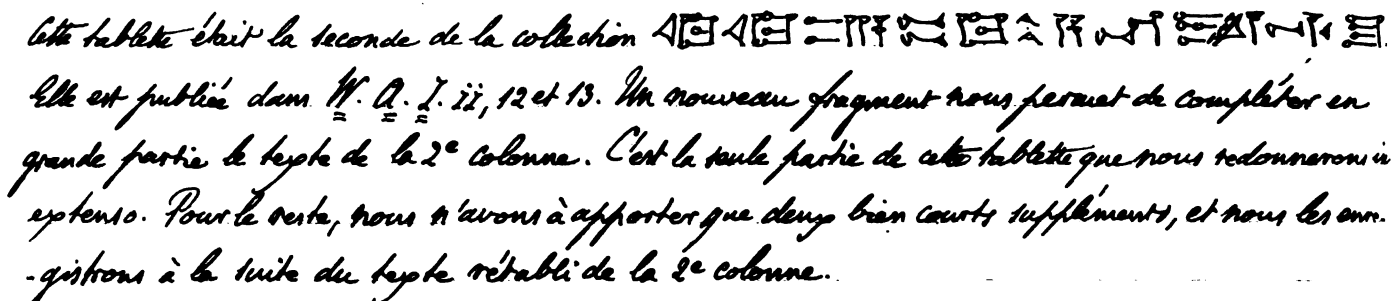 Cette tablette était la seconde de la collection
Elle est publiée dans W. A. I. ii, 12 et 13. Un nouveau fragment nous permet de compléter en
grande partie le texte de la 2e colonne. C'est la seule partie de cette tablette que nous redonnerons in
extenso. Pour le reste, nous n'avons à apporter que deux bien courts suppléments, et nous les enre-
-gistrons à la suite du texte rétabli de la 2e colonne.